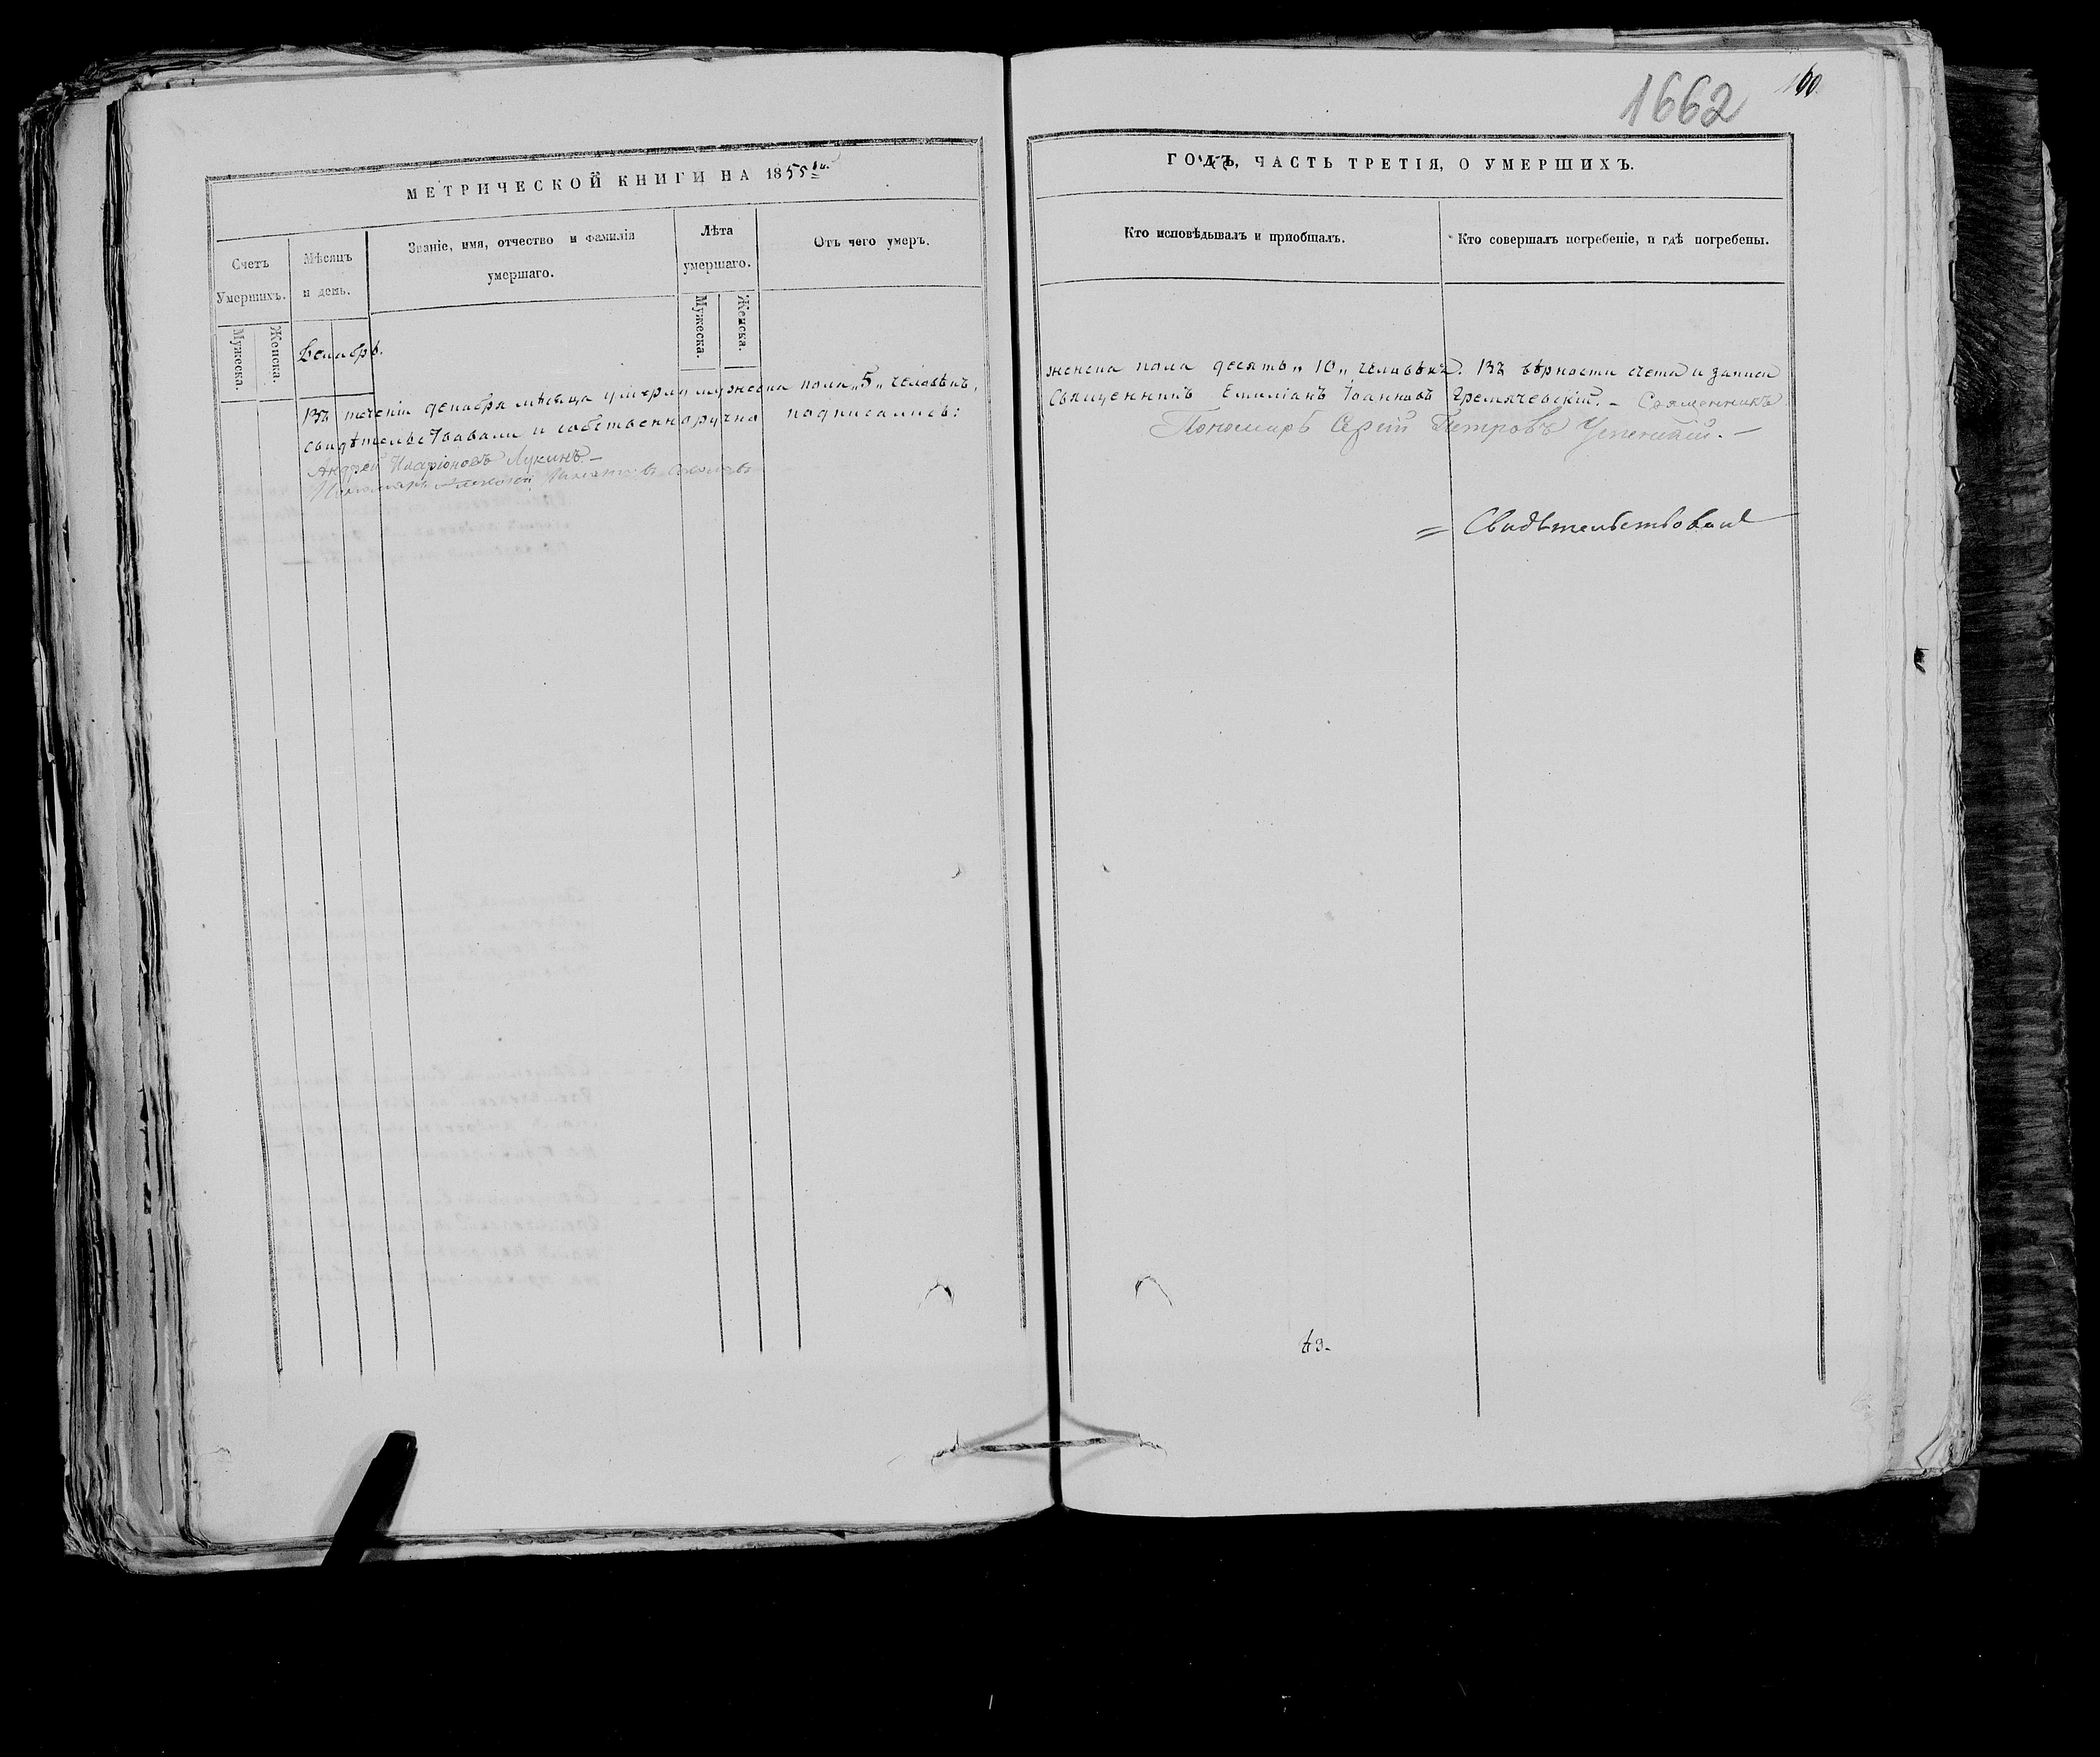 1662
160.
МЕТРИЧЕСКОЙ КНИГИ НА 1855 го.
Счетъ
Умершихъ.
Мужеска.
Женска.
Мѣсяцъ
и день.
Званіе, имя, отчество и фамилія
умершаго.
Лѣта
умершаго.
Мужеска.
Женска.
Отъ чего умеръ.
Декабрь.
Въ теченіи декабря мѣсяца умерли мужеска пола „5„ человѣкъ,
свидѣтельствовали и собственноручно подписались:
Андрей Иларіоновъ Лукинъ.
Пономарь Алексей
ГОДЪ, ЧАСТЬ ТРЕТІЯ, О УМЕРШИХЪ.
Кто исповѣдывалъ и пріобщалъ.
Кто совершалъ погребеніе, и гдѣ погребены.
женска пола десять „10„ человѣкъ. Въ вѣрности счета и записи
Священникъ Емиліанъ Іоанновъ Гремячевскій. – Священникъ
Пономарь Сергій Петровъ Успенскій. –
= Свидѣтельствовалъ